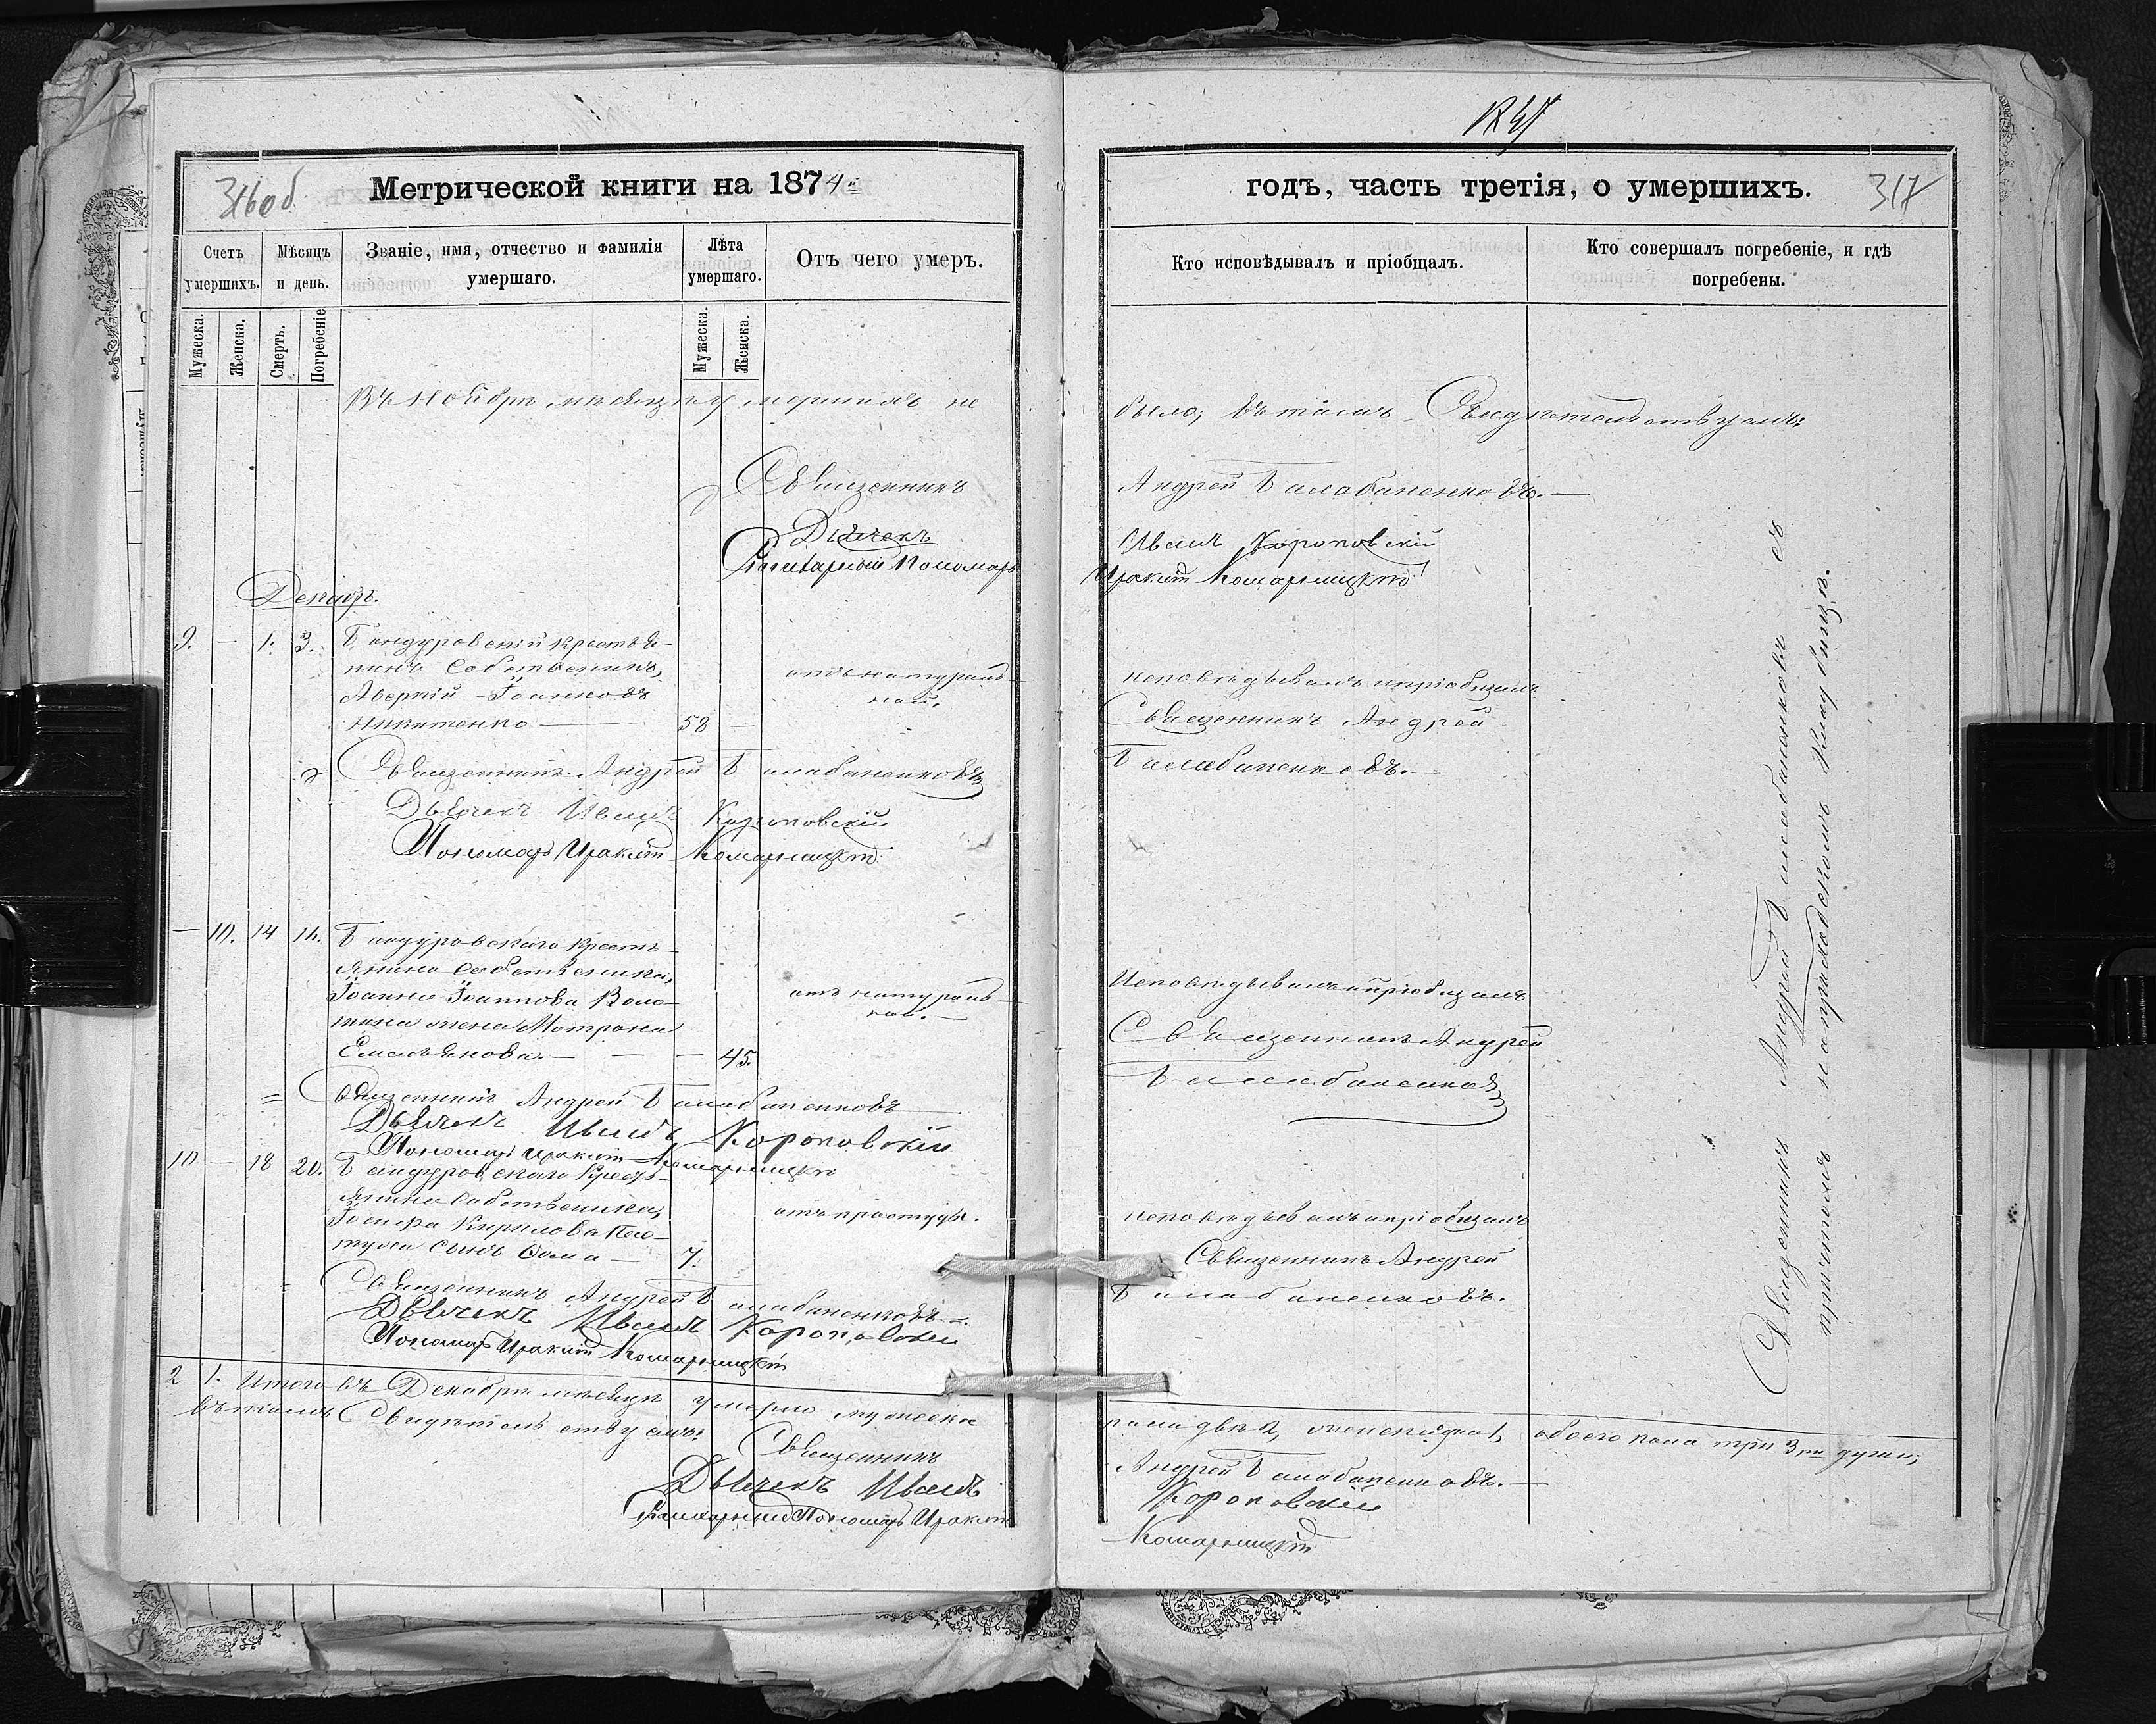 316 об
Метрической книги на 1874й
Счетъ умершихъ.
Мѣсяцъ и день.
Званіе, имя, отчество и фамилія умершаго.
Лѣта умершаго.
Отъ чего умеръ.
Мужеска.
Женска.
Смерть.
Погребеніе
Мужеска.
Женска.
Въ Ноябрѣ мѣсяцѣ умершихъ не
Священникъ
Дьячекъ
Пономарь
Декабрь.
9. — 1. 3. Бандуровскій крестья-
нинъ собственникъ,
Аверкій Іоанновъ
отъ натураль-
ной.
Никитенко — 58 —
Священникъ Андрей Балабаненковъ
Дьячекъ Иванъ Короповскій
Пономарь Иракл Комарницкій
— 10. 14 16. Бандуровскаго крестъ-
янина собственника,
Іоанна Іоаннова Воло-
отъ натураль-
ной. —
жена Матрона
Емельянова — — — 45.
Священникъ Андрей Балабаненковъ
Дьячекъ Иванъ Короповскій
Пономарь Иракл Комарницкій
10 — 18 20. Бандуровскаго крест-
янина собственника,
отъ простуды.
Кирилова
сынъ Фома — 7.
Священникъ Андрей Балабаненковъ.
Дьячекъ Иванъ Короповскій
Пономарь Иракл Комарницкій
2 1. Итого въ Декабрѣ мѣсяцѣ умерло мужеска
въ томъ Свидѣтельствуемъ:
Священникъ
Дьячекъ Иванъ
Пономарь Иракл
годъ, часть третія, о умершихъ.
317
Кто исповѣдывалъ и пріобщалъ.
Кто совершалъ погребеніе, и гдѣ погребены.
было; въ томъ Свидѣтельствуемъ:
Андрей Балабаненковъ. —
Иванъ Короповскій
Иракл Комарницкій
исповѣдывалъ и пріобщалъ
Священникъ Андрей
Балабаненковъ. —
Исповѣдывалъ и пріобщалъ
Священникъ Андрей
Балабаненковъ
исповѣдывалъ и пріобщалъ
Священникъ Андрей
Балабаненковъ.
Священникъ Андрей Балабаненковъ съ
причтомъ на приходскомъ кладбищѣ.
пола два 2, женска одна 1, обоего пола три 3 души;
Андрей Балабаненковъ. —
Короповскій
Комарницкій